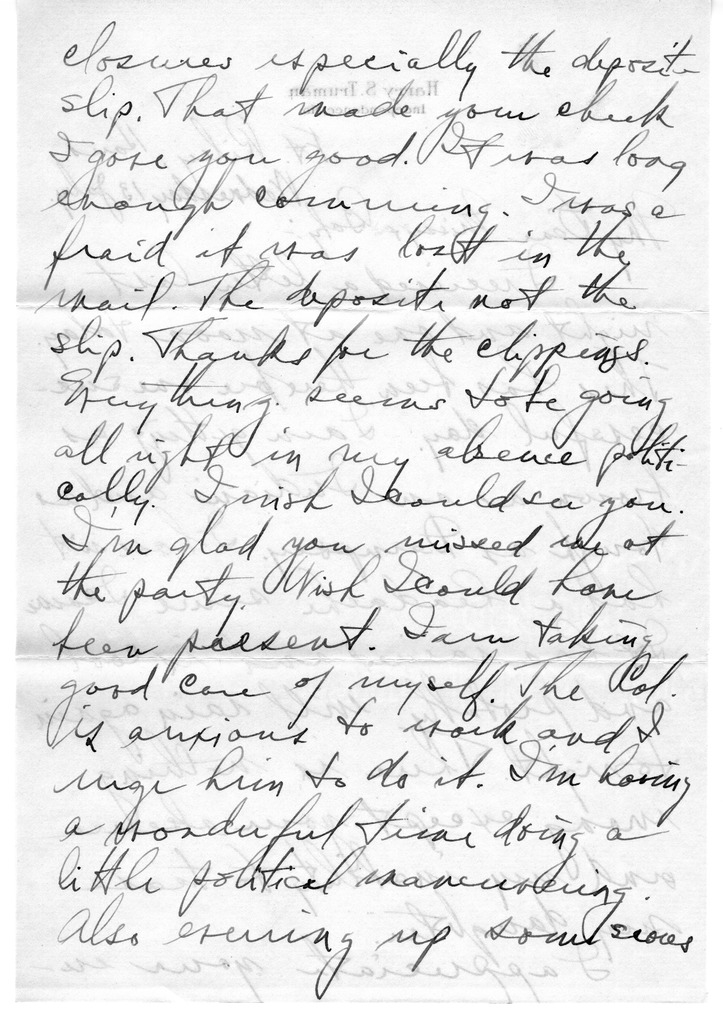 closures especially the deposite
slip. That made your check
I gave you good. It was long
enough comming. I was a
fraid it was lost in the
mail. The deposite not the
slip. Thanks for the clippings.
Everything seems to be going
all right in my absence politi-
cally. I wish I could see you.
I'm glad you missed me at
the party. Wish I could have
been present. I am taking
good care of myself. The Col.
is anxious to work and I
urge him to do it. I'm having
a wonderful time doing a
little political maneuvering.
Also evening up some scores